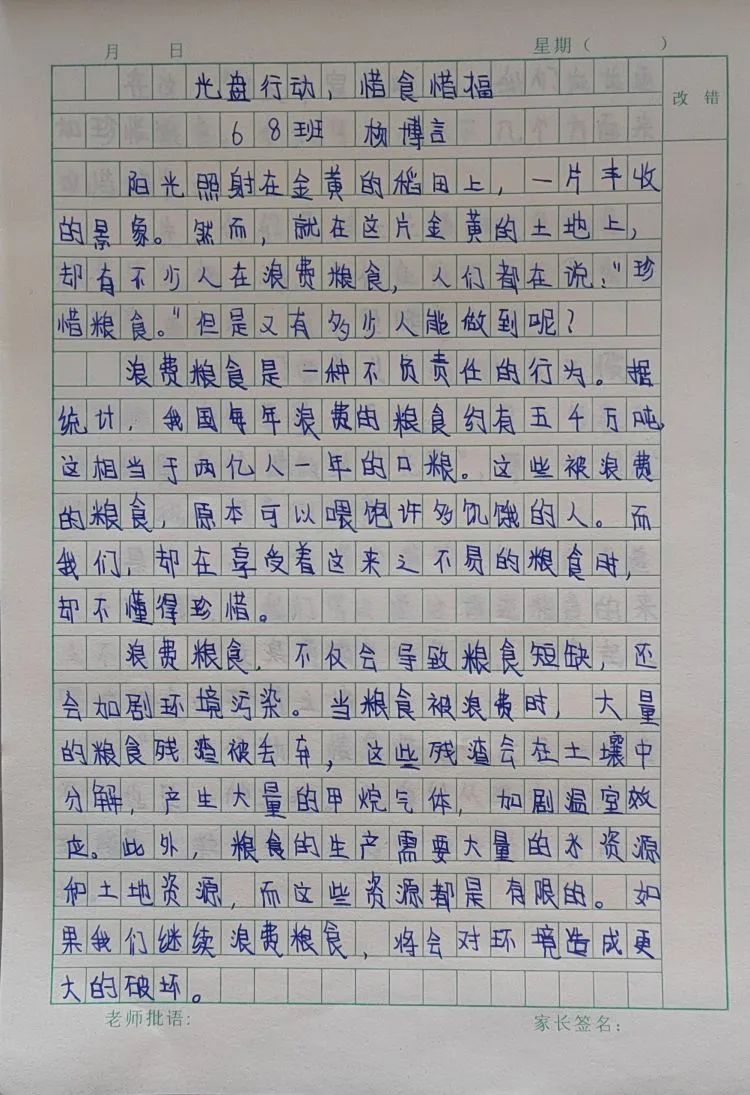 月 日 星期( )
光盘行动，惜食惜福
改错
68班 杨博言
阳光照射在金黄的稻田上，一片丰收
的景象。然而，就在这片金黄的土地上，
却有不少人在浪费粮食，人们都在说："珍
惜粮食。"但是又有多少人能做到呢？
浪费粮食是一种不负责任的行为。据
统计，我国每年浪费的粮食约有五千万吨，
这相当于两亿人一年的口粮。这些被浪费
的粮食，原本可以喂饱许多饥饿的人。而
我们，却在享受着这来之不易的粮食时，
却不懂得珍惜。
浪费粮食，不仅会导致粮食短缺，还
会加剧环境污染。当粮食被浪费时，大量
的粮食残渣被丢弃，这些残渣会在土壤中
分解，产生大量的甲烷气体，加剧温室效
应。此外，粮食的生产需要大量的水资源
和土地资源，而这些资源都是有限的。如
果我们继续浪费粮食，将会对环境造成更
大的破坏。
老师批语： 家长签名：